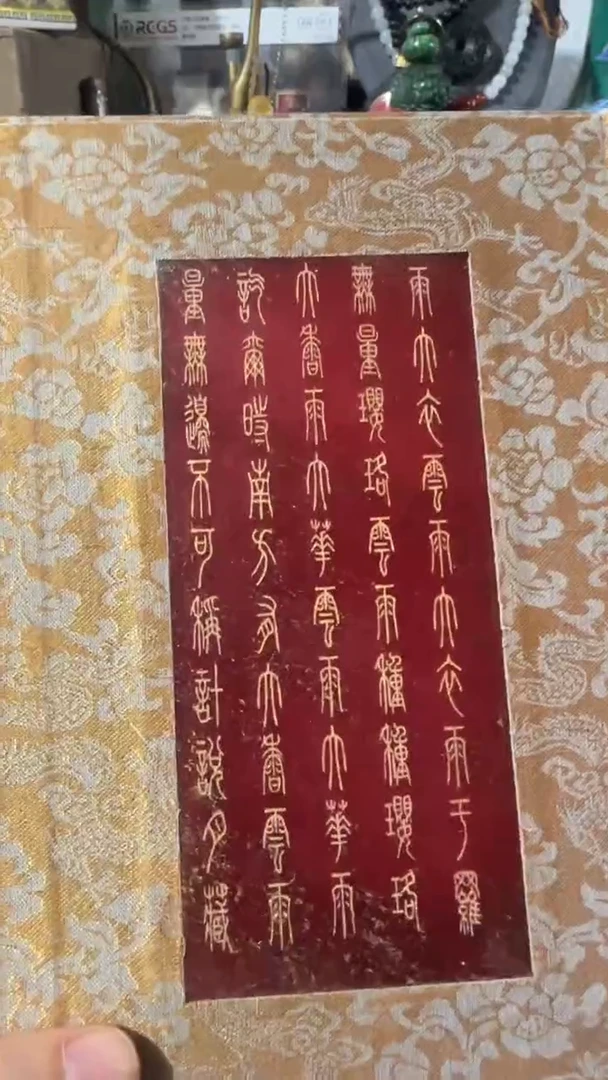 RCGS
量無邊不可稱計說月藏
訖爾時南方有大香雲雨
大香雨大華雲雨大華雨
無量瓔珞雲雨種種瓔珞
雨大衣雲雨大衣雨于羅